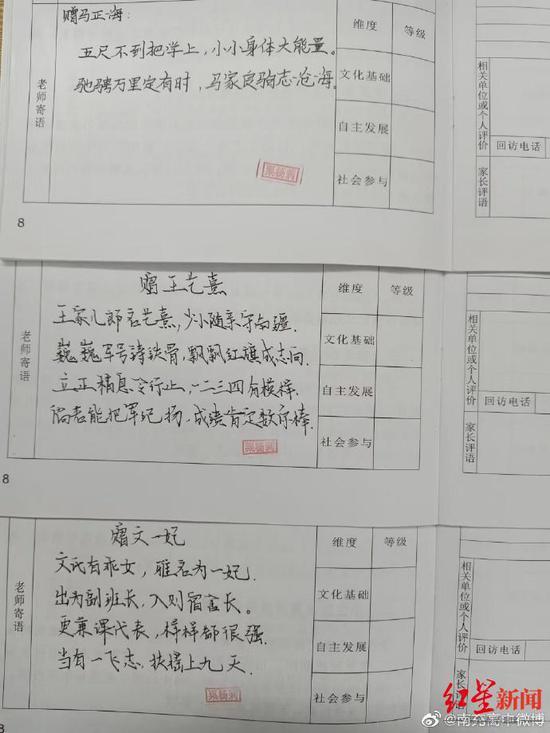 赠马正海:
五尺不到把学上,小小身体大能量。
驰骋万里定有时,马家良驹志沧海。
老师寄语
维度 等级
文化基础
自主发展
社会参与
相关单位或个人评价
回访电话
家长评语
8
赠王艺熹
王家儿郎名艺熹,少小随亲守南疆.
巍巍军号铸铁骨,飘飘红旗成志向.
立正稍息令行止,一二三四有模样.
倘若能把军纪扬,成绩肯定数你棒.
老师寄语
维度 等级
文化基础
自主发展
社会参与
相关单位或个人评价
回访电话
家长评语
8
赠文一妃
文氏有乖女,雅名为一妃.
出为副班长,入则宿舍长。
更兼课代表,样样都很强.
当有一飞志,扶摇上九天.
老师寄语
维度 等级
文化基础
自主发展
社会参与
相关单位或个人评价
回访电话
家长评语
8
红星新闻
@南充高中微博